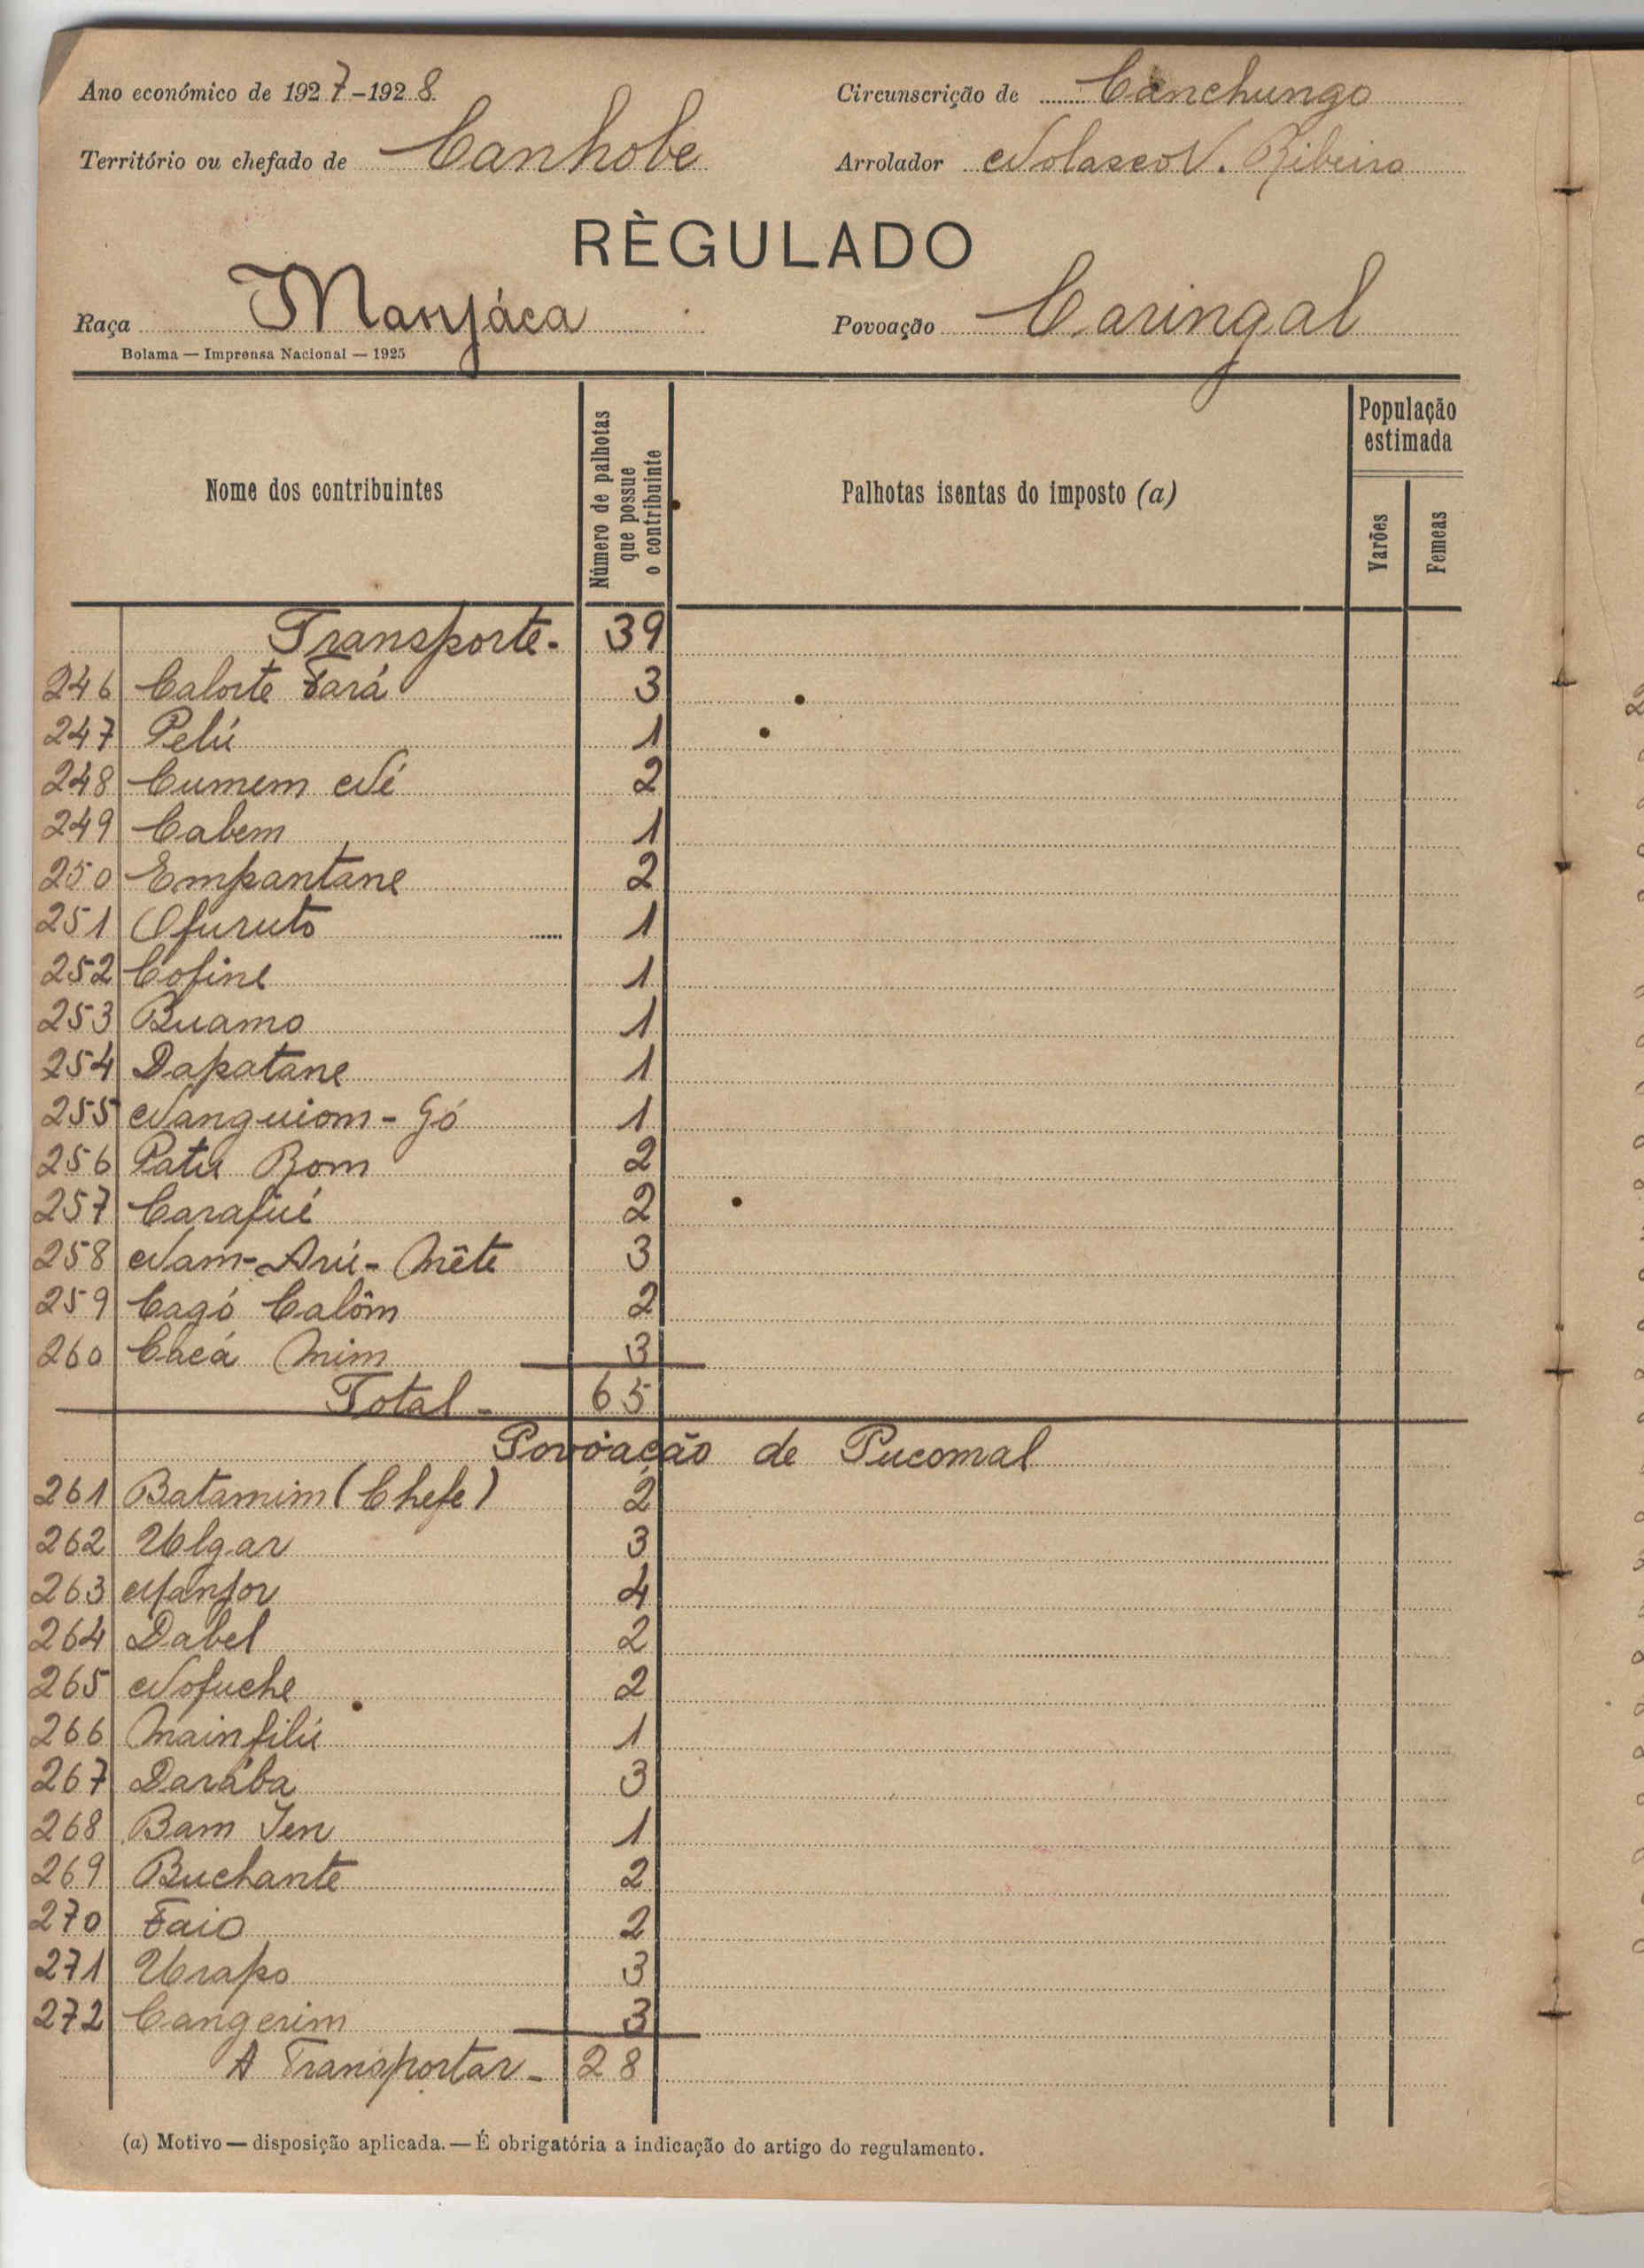 Ano económico de 1927-1928 Circunscrição de Canchungo
Território ou chefado de Canhobe Arrolador Nolasco V. Ribeiro
RÈGULADO
Raça Manjáca Povoação Caringal
Bolama — Imprensa Nacional — 1925
Nome dos contribuintes Número de palhotas que possue o contribuinte Palhotas isentas do imposto (a) População estimada Varões Femeas
Transporte- 39
246 Calorte Fará 3
247 Pelú 1
248 Cumem Né 2
249 Cabem 1
250 Empantane 2
251 Ofuruto 1
252 Cofine 1
253 Buamo 1
254 Dapatane 1
255 Nanguiom-Gó 1
256 Patu Bom 2
257 Carafué 2
258 Nam-Arú-Mête 3
259 Cagó Calôm 2
260 Cacá Mim 3
Total - 65
Povoação de Pucomal
261 Batamim (Chefe) 2
262 Ulgar 3
263 Manjor 4
264 Dabel 2
265 Nofuche 2
266 Mainfilú 1
267 Darába 3
268 Bam Ien 1
269 Buchante 2
270 Faio 2
271 Urapo 3
272 Cangerim 3
A Transportar - 28
(a) Motivo — disposição aplicada. — É obrigatória a indicação do artigo do regulamento.